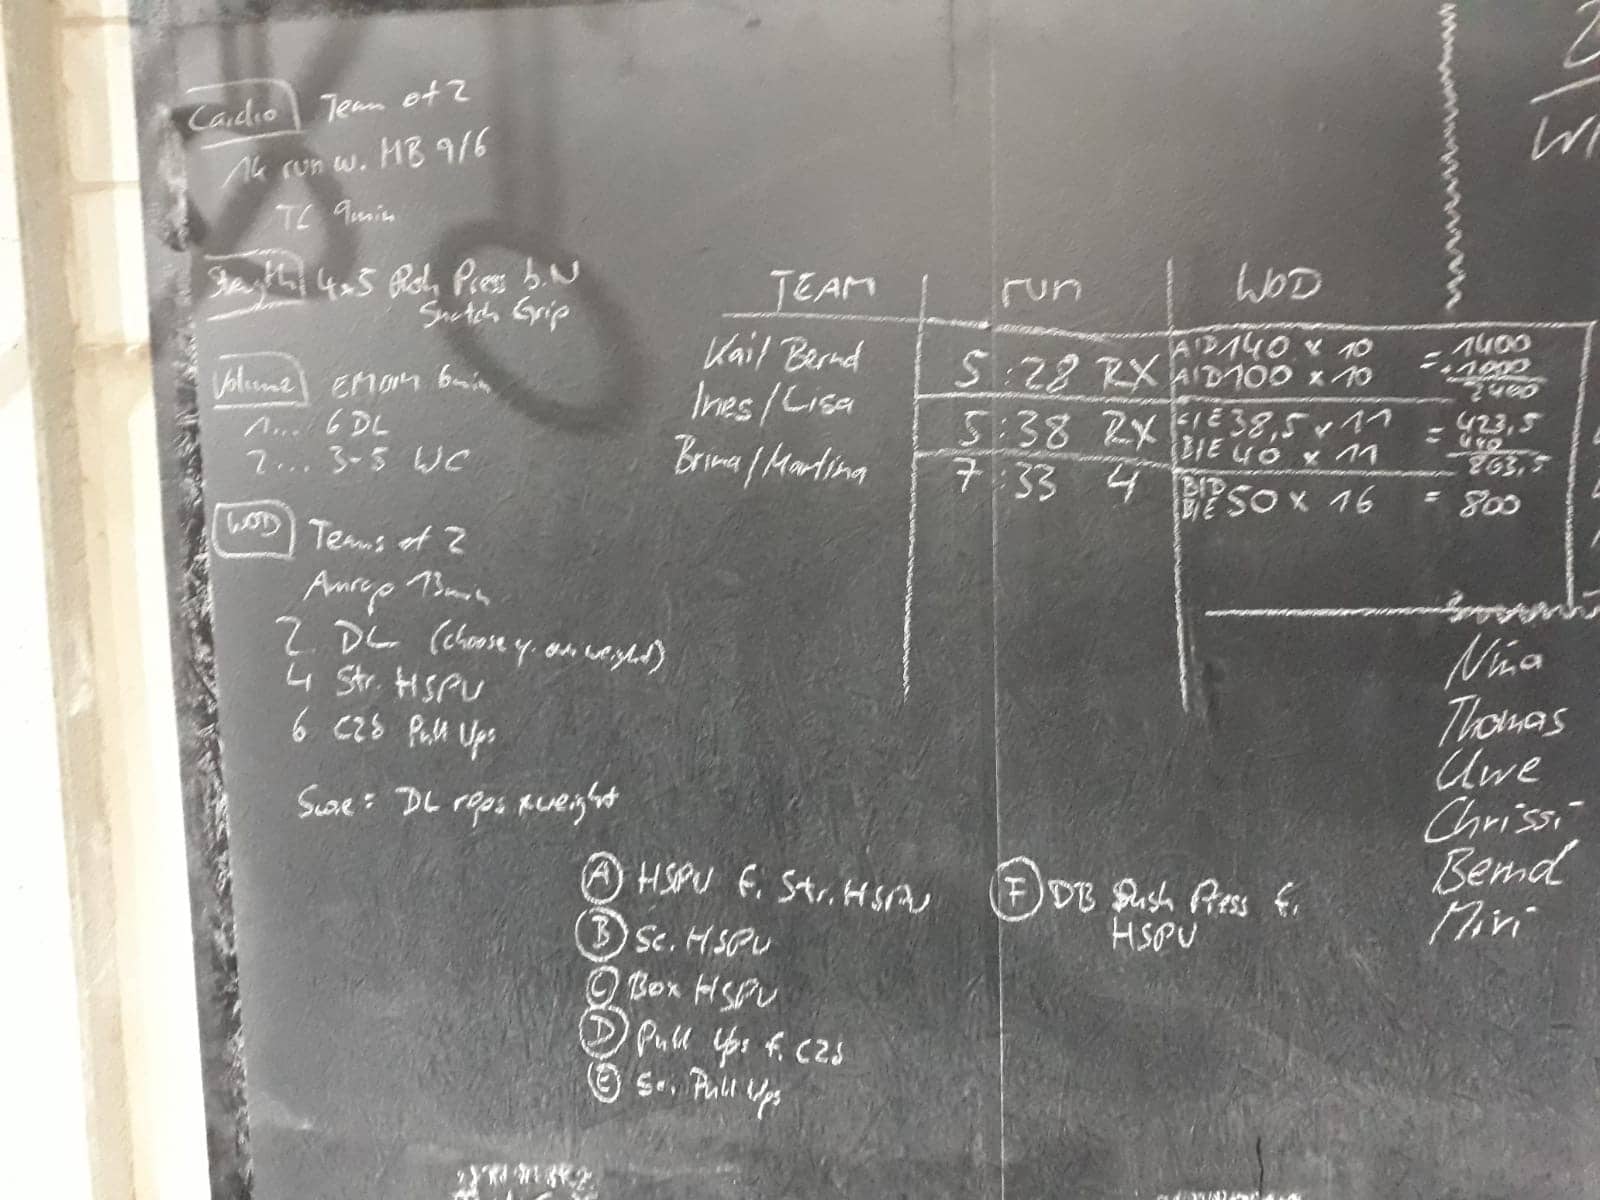 Cardio Team of 2
1k run w. MB 9/6
TC 9min
Strength 4x5 Push Press b.N
Snatch Grip
Volume EMOM 6min
1... 6 DL
2... 3-5 WC
WOD Teams of 2
Amrap 13min
2 DL (choose y. own weight)
4 Str. HSPU
6 C2b Pull Ups
Score = DL reps x weight
TEAM run WOD
Kai/Bernd 5:28 RX A/D 140 x 10 = 1400
A/D 100 x 10 + 1000
2400
Ines/Lisa 5:38 RX 38,5 x 11 = 423,5
B/E 40 x 11 = 440
863,5
Brina/Martina 7:33 4 B/D
B/E 50 x 16 = 800
A HSPU f. Str. HSPU
B Sc. HSPU
C Box HSPU
D Pull Ups f. C2b
E Sc. Pull Ups
F DB Push Press f.
HSPU
Nina
Thomas
Uwe
Chrissi
Bernd
Miri